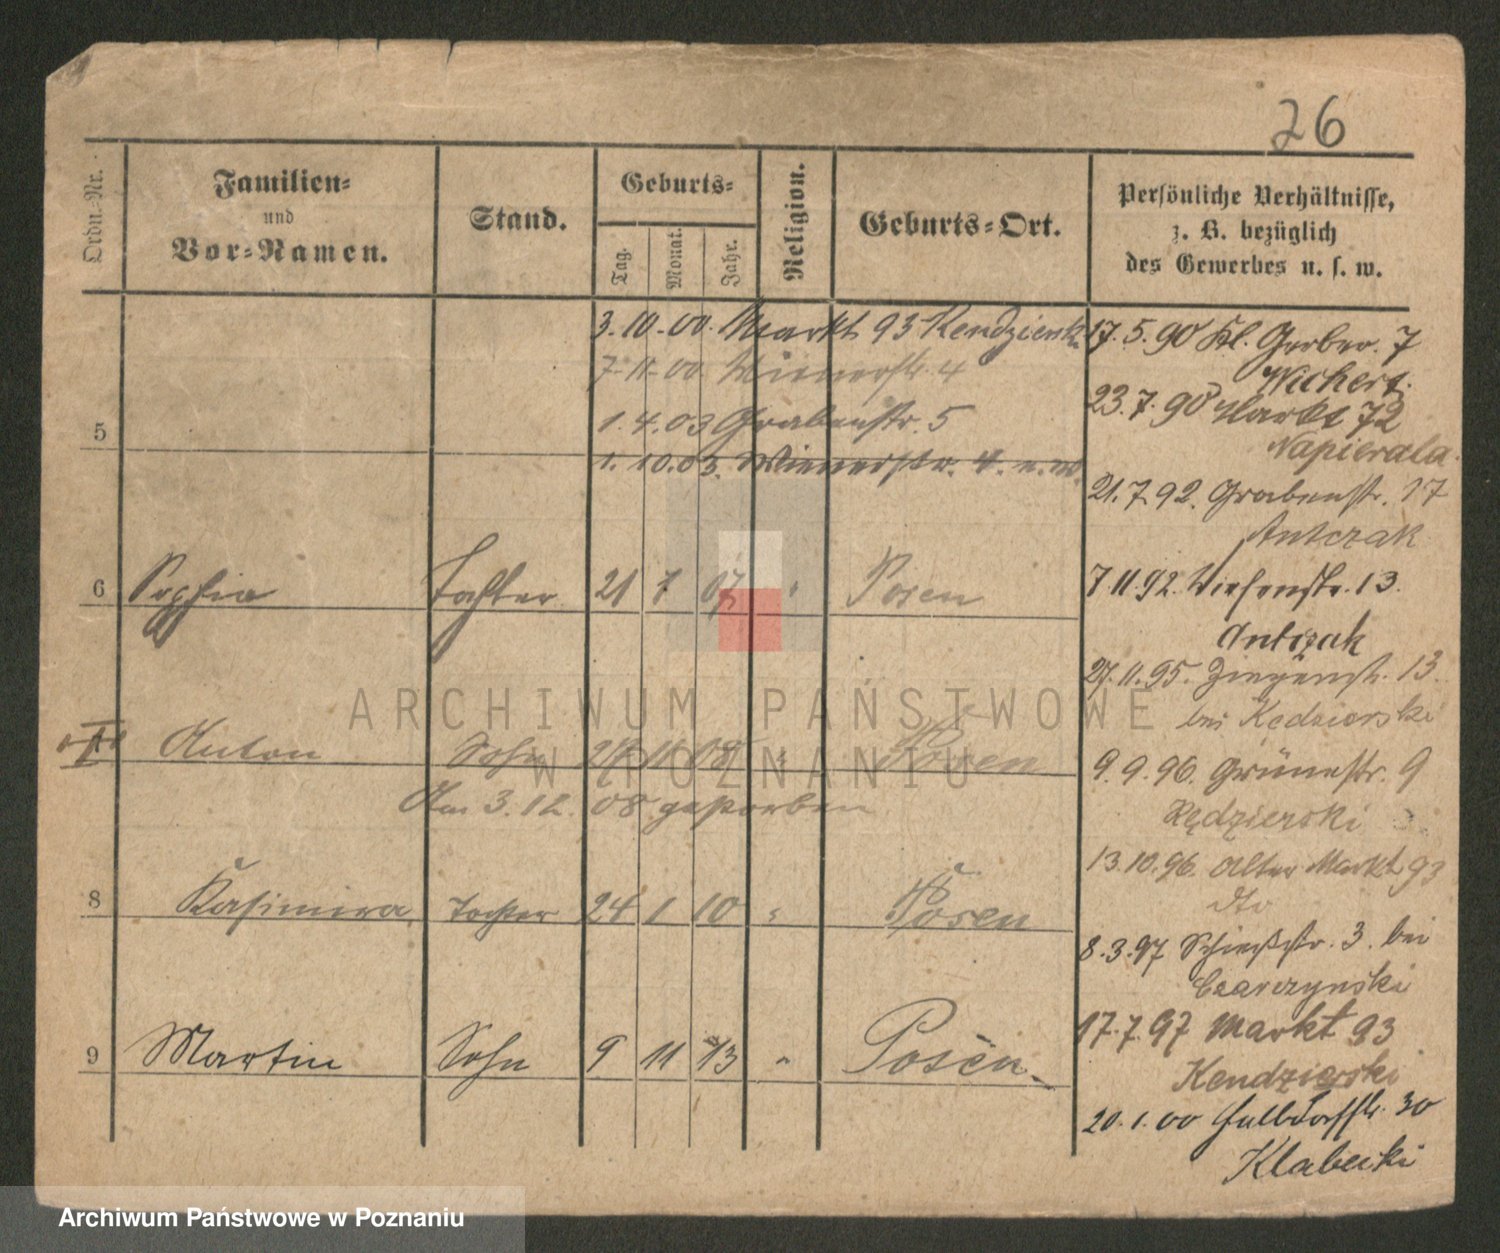 76
Ordn.-Nr.
Familien-
und
Vor-Namen.
Stand.
Geburts-
Tag.
Monat.
Jahr.
Religion.
Geburts-Ort.
Persönliche Verhältnisse,
z. B. bezüglich
des Gewerbes u. s. w.
3.10.00. Markt 93 Kendziersk
7.11.00 Wienerstr. 4
1.4.03 Grabenstr. 5
1.10.03. Wienerstr. 4.
5
6 Sophia Tochter 21 7 07 " Posen
Anton Sohn 11 08 " Posen
Am 3.12.08 gestorben
8 Kasimira Tochter 24 1 10 " Posen
9 Martin Sohn 9 11 13 " Posen
17.5.90 Kl. Gerber. 7
Wichert.
23.7.90 Markt 72
Napierala.
21.7.92. Grabenstr. 17
Antczak
7.11.92. Wiesenstr. 13.
Antczak
27.11.95. Ziegenstr. 13.
bei Kedzierski
9.9.96. Grünestr. 9
Kędzierski
13.10.96. Alter Markt 93
dto
8.3.97 Schießstr. 3. bei
Czarczynski
17.7.97 Markt 93
Kendzierski
20.1.00 Halbdorfstr. 30
Klabecki
ARCHIWUM PAŃSTWOWE
W POZNANIU
Archiwum Państwowe w Poznaniu